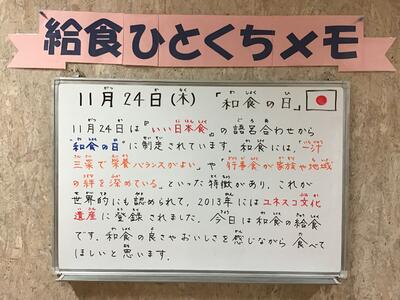 給食ひとくちメモ
11月24日(木)「和食の日」
11月24日は『いい日本食』の語呂合わせから
"和食の日"に制定されています。和食には、「一汁
三菜で栄養バランスがよい」や「行事食が家族や地域
の絆を深めている」といった特徴があり、これが
世界的にも認められて、2013年にはユネスコ文化
遺産に登録されました。今日は和食の給食
です。和食の良さやおいしさを感じながら食べて
ほしいと思います。